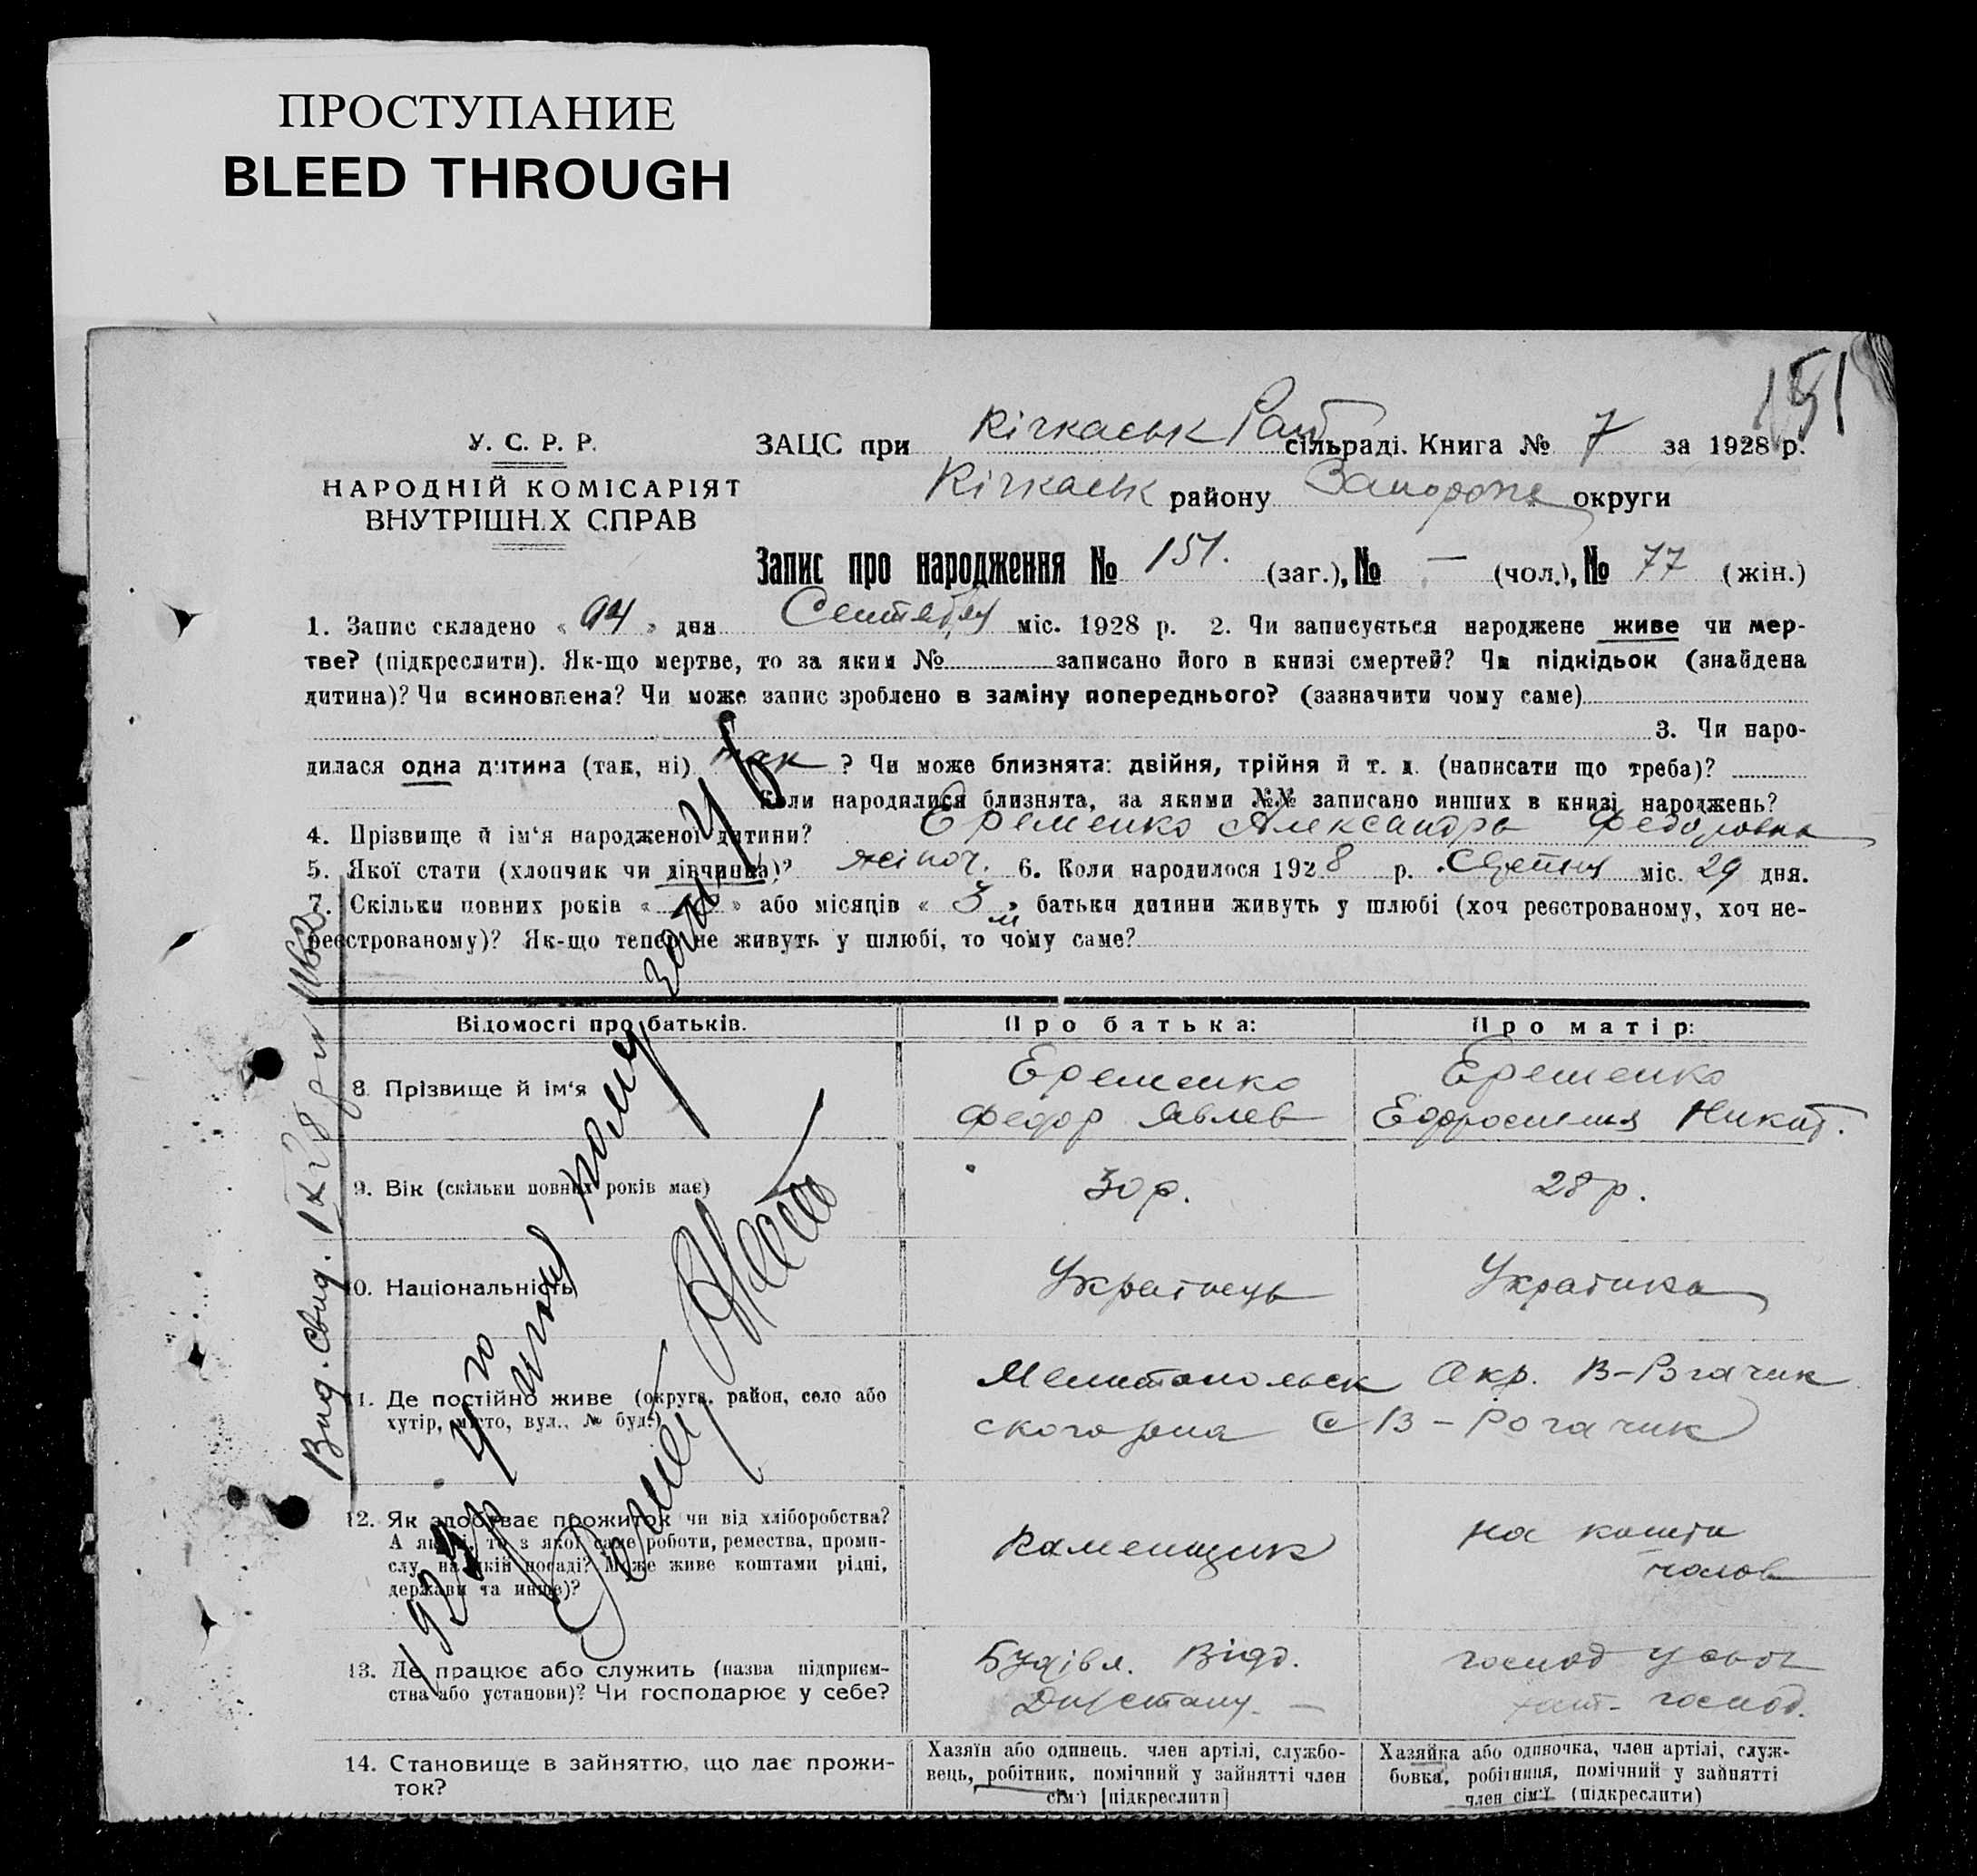 ПРОСТУПАНИЕ
BLEED THROUGH
151
У. С. Р. Р.
НАРОДНІЙ КОМІСАРІЯТ
ВНУТРІШНІХ СПРАВ
ЗАЦС при Кічкаськ Рай сільраді. Книга № 7 за 1928 р.
Кічкаськ району Запорож округи
Запис про народження № 151. (заг.), № — (чол.), № 77 (жін.)
1. Запис складено « » дня Сентября міс. 1928 р. 2. Чи записується народжене живе чи мер-
тве? (підкреслити). Як-що мертве, то за яким № записано його в книзі смертей? Чи підкідьок (знайдена
дитина)? Чи всиновлена? Чи може запис зроблено в заміну попереднього? (зазначити чому саме)
3. Чи наро-
дилася одна дитина (так, ні) так ? Чи може близнята: двійня, трійня й т. д. (написати що треба)?
Коли народилися близнята, за якими №№ записано инших в книзі народжень?
4. Прізвище й ім‘я народженої дитини? Еременко Александра Федоровна
5. Якої стати (хлопчик чи дівчинка)? жіноч. 6. Коли народилося 1928 р. міс. 29 дня.
7. Скільки повних років « » або місяців « 3 м » батьки дитини живуть у шлюбі (хоч реєстрованому, хоч не-
реєстрованому)? Як-що тепер не живуть у шлюбі, то чому саме?
Відомості про батьків.
Про батька:
Про матір:
8. Прізвище й ім‘я
Еременко
Федор Явлев
Еременко
Ефросиния Никит.
9. Вік (скільки повних років має)
30 р.
28 р.
10. Національність
Українець
Українка
11. Де постійно живе (округа, район, село або
хутір, місто, вул., № буд.)
Мелитопольск Окр. В-Рогачик
ского рона С В-Рогачик
12. Як здобуває прожиток чи від хліборобства?
А як ні, то з якої саме роботи, ремества, проми-
слу, на якій посаді? Може живе коштами рідні,
держави та инше)?
Каменщик
на кошти
чолов
13. Де працює або служить (назва підприєм-
ства або установи)? Чи господарює у себе?
Будівл. Відд.
господ у свої
господ.
14. Становище в зайняттю, що дає прожи-
ток?
Хазяїн або одинець, член артілі, службо-
вець, робітник, помічний у зайнятті член
сім'ї [підкреслити]
Хазяйка або одиночка, член артілі, служ-
бовка, робітниця, помічний у зайнятті
член сім'ї (підкреслити)
Вид. свид.